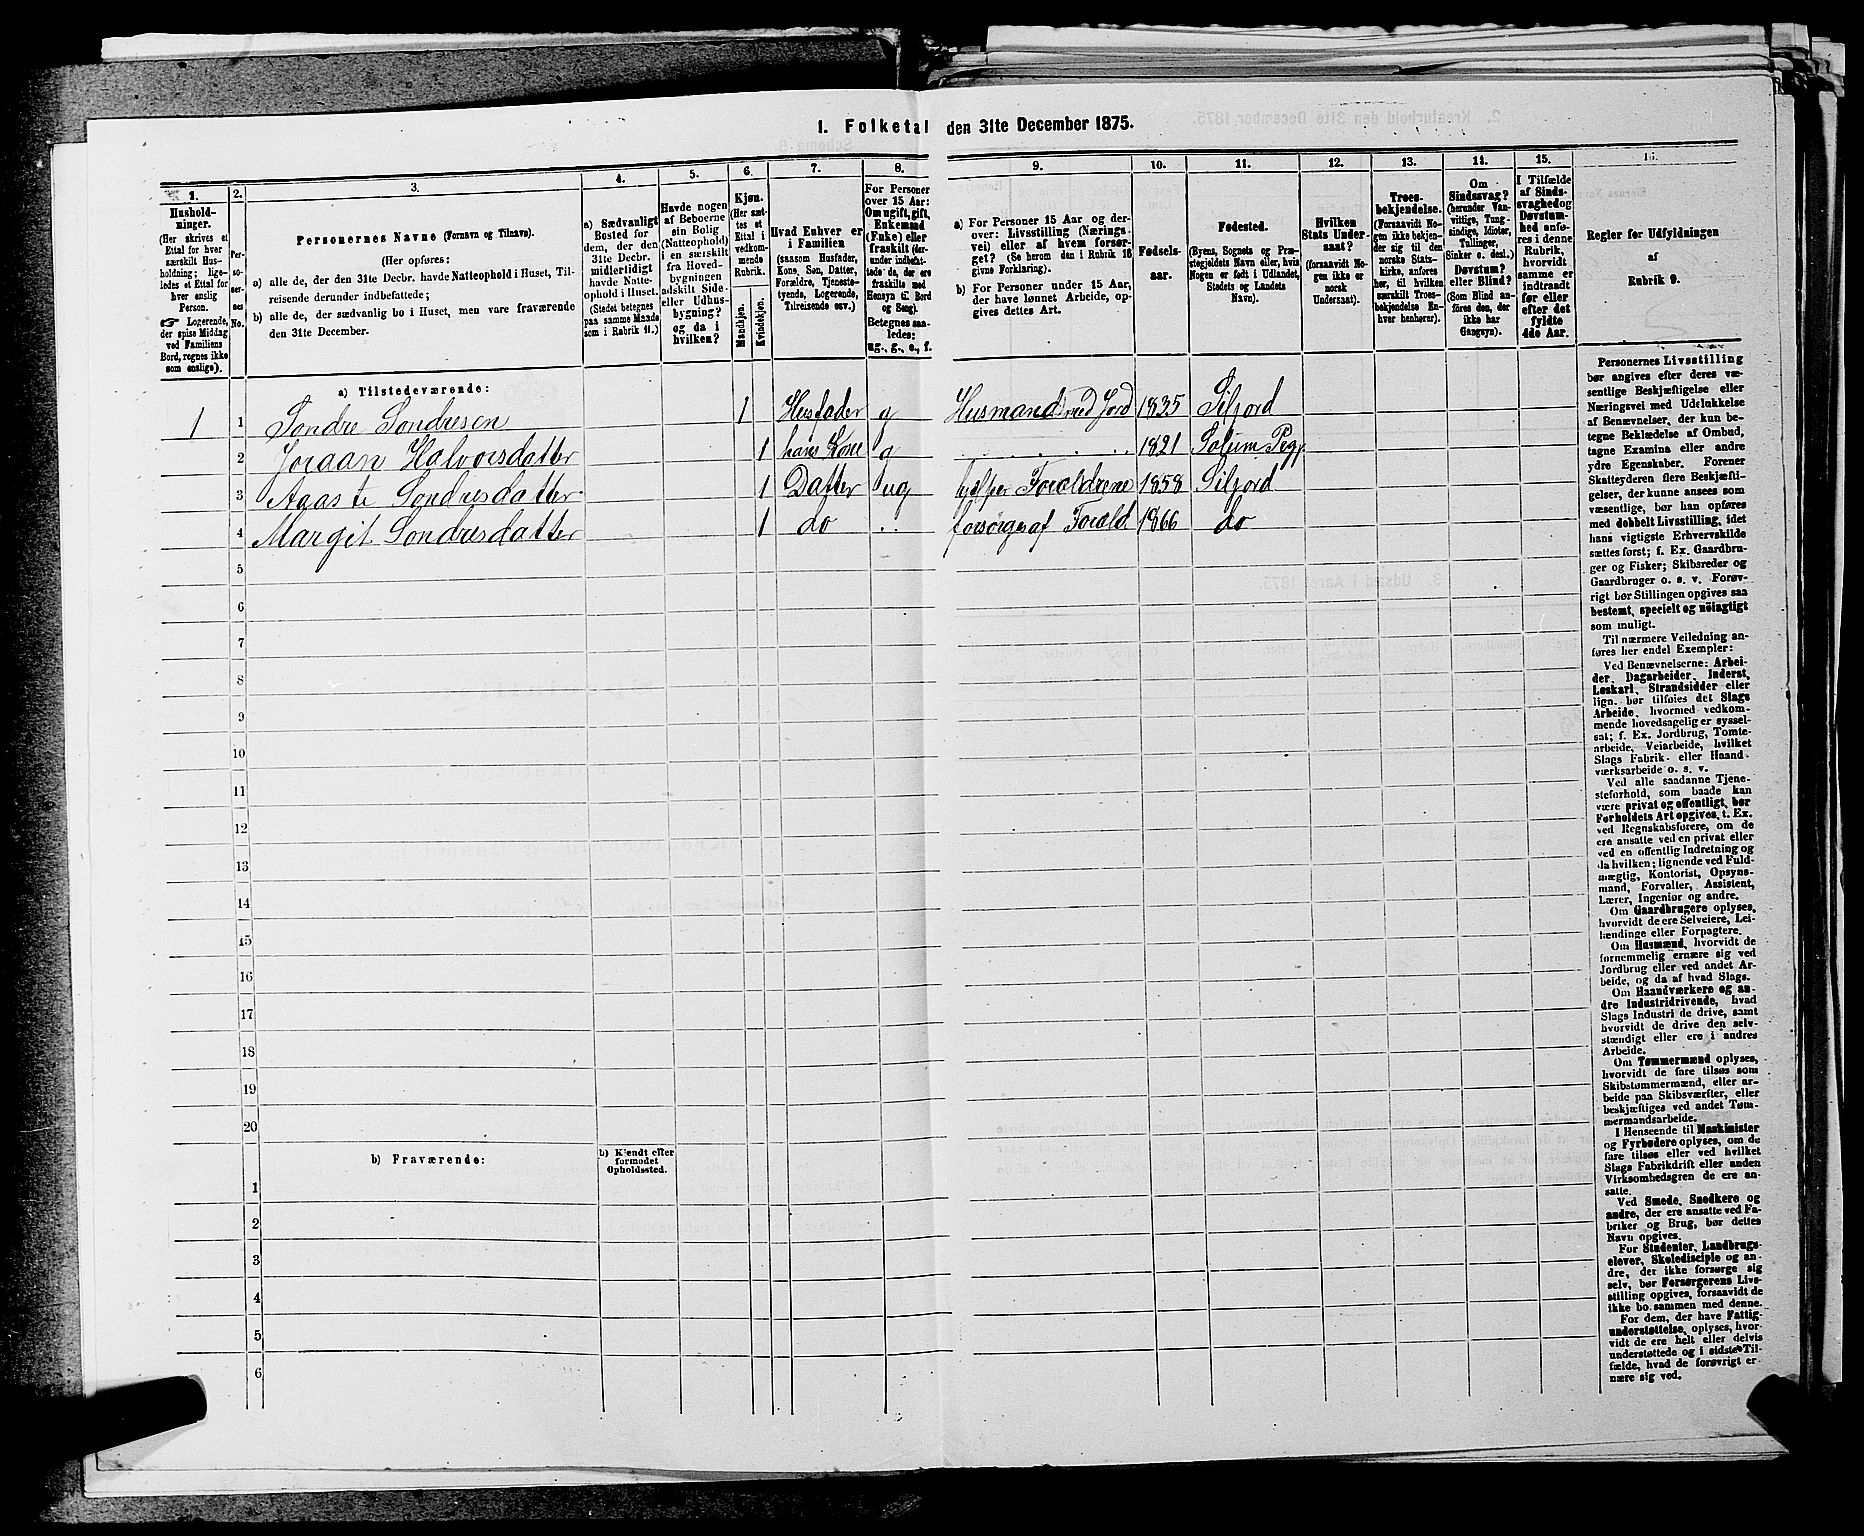 1. Folketal den 31te December 1875.
1.
Hushold-
ninger.
(Her skrives et
Ettal for hver
særskilt Hus-
holdning; lige-
ledes et Ettal for
hver enslig
Person.
☞ Logerende,
der spise Middag
ved Familiens
Bord, regnes ikke
som enslige).
2.
Per-
so-
ner-
nes
No.
3.
Personernes Navne (Fornavn og Tilnavn).
(Her opføres:
a) alle de, der den 31te Decbr. havde Natteophold i Huset, Til-
reisende derunder indbefattede;
b) alle de, der sædvanlig bo i Huset, men vare fraværende
den 31te December.
4.
a) Sædvanligt
Bosted for
dem, der den
31te Decbr.
midlertidigt
havde Natte-
ophold i Huset.
(Stedet betegnes
paa samme Maade
som i Rubrik 11.)
5.
Havde nogen
af Beboerne
sin Bolig
(Natteophold)
i en særskilt
fra Hoved-
bygningen
adskilt Side-
eller Udhus-
bygning?
og da i
hvilken?
6.
Kjøn.
(Her sæt-
tes et
Ettal i
vedkom-
mende
Rubrik.
Mandkjøn.
Kvindekjøn.
7.
Hvad Enhver er
i Familien
(saasom Husfader,
Kone, Søn, Datter,
Forældre, Tjeneste-
tyende, Logerende,
Tilreisende osv.)
8.
For Personer
over 15 Aar:
Om ugift, gift,
Enkemand
(Enke) eller
fraskilt (der-
under indbefat-
tede de, der ere
fraskilte med
Hensyn til Bord
og Seng).
Betegnes saa-
ledes:
ug., g., e., f.
9.
a) For Personer 15 Aar og der-
over: Livsstilling (Nærings-
vei) eller af hvem forsør-
get? (Se herom den i Rubrik 16
givne Forklaring).
b) For Personer under 15 Aar,
der have lønnet Arbeide, op-
gives dettes Art.
10.
Fødsels-
aar.
11.
Fødested.
(Byens, Sognets og Præ-
stegjeldets Navn eller, hvis
Nogen er født i Udlandet,
Stedets og Landets
Navn).
12.
Hvilken
Stats Under-
saat?
(forsaavidt No-
gen ikke er
norsk
Undersaat).
13.
Troes-
bekjendelse.
(Forsaavidt No-
gen ikke bekjen-
der sig til den
norske Stats-
kirke, anføres
her, til hvilken
særskilt Troes-
bekjendelse En-
hver henhører).
14.
Om
Sindssvag?
(herunder Van-
vittige, Tung-
sindige, Idioter,
Tullinger,
Sinker o. desl.)
Døvstum?
eller Blind?
(Som Blind an-
føres den, der
ikke har
Gangsyn).
15.
I Tilfælde
af Sinds-
svaghed og
Døvstum-
hed anfø-
res i denne
Rubrik,
hvorvidt
samme er
indtraadt
før eller
efter det
fyldte
4de Aar.
16.
Regler for Udfyldningen
af
Rubrik 9.
a) Tilstedeværende:
1 1 Sondre Sondresen 1 Husfader g Husmand med Jord 1835 Siljord
2 Joraan Halvorsdatter 1 hans Kone g 1821 Solum Pegj
3 Aaste Sondresdatter 1 Datter ug hjelper Forældrene 1858 Siljord
4 Margit Sondresdatter 1 do forsørges af Foræld. 1866 do
5
6
7
8
9
10
11
12
13
14
15
16
17
18
19
20
b) Fraværende:
b) Kjendt eller
formodet
Opholdssted.
1
2
3
4
5
6
Personernes Livsstilling
bør angives efter deres væ-
sentlige Beskjæftigelse eller
Næringsvei med Udelukkelse
af Benævnelser, der kun be-
tegne Beklædelse af Ombud,
tagne Examina eller andre
ydre Egenskaber. Forener
Skatteyderen flere Beskjæfti-
gelser, der kunne ansees som
væsentlige, bør han opføres
med dobbelt Livsstilling, idet
hans vigtigste Erhvervskilde
sættes først; f. Ex. Gaardbru-
ger og Fisker; Skibsreder og
Gaardbruger o. s. v. Forøv-
rigt bør Stillingen opgives saa
bestemt, specielt og nøiagtigt
som muligt.
Til nærmere Veiledning an-
føres her endel Exempler:
Ved Benævnelserne: Arbei-
der, Dagarbeider, Inderst,
Løskarl, Strandsidder eller
lign. bør tilføies det Slags
Arbeide, hvormed vedkom-
mende hovedsagelig er syssel-
sat; f. Ex. Jordbrug, Tomte-
arbeide, Veiarbeide, hvilket
Slags Fabrik- eller Haand-
værksarbeide o. s. v.
Ved alle saadanne Tjene-
steforhold, som baade kan
være privat og offentligt, bør
Forholdets Art opgives, t. Ex.
ved Regnskabsførere, om de
ere ansatte ved en privat eller
ved en offentlig Indretning og
da hvilken; lignende ved Fuld-
mægtig, Kontorist, Opsyns-
mand, Forvalter, Assistent,
Lærer, Ingeniør og andre.
Om Gaardbrugere oplyses,
hvorvidt de ere Selveiere, Lei-
lændinge eller Forpagtere.
Om Husmænd, hvorvidt de
fornemmelig ernære sig ved
Jordbrug eller ved andet Ar-
beide, og da af hvad Slags.
Om Haandværkere og an-
dre Industridrivende, hvad
Slags Industri de drive, samt
hvorvidt de drive den selv-
stændigt eller ere i andres
Arbeide.
Om Tømmermænd oplyses,
hvorvidt de fare tilsøs som
Skibstømmermænd, eller ar-
beide paa Skibsværfter, eller
beskjæftiges ved andet Tøm-
mermandsarbeide.
I Henseende til Maskinister
og Fyrbødere oplyses, om de
fare tilsøs eller ved hvilket
Slags Fabrikdrift eller anden
Virksomhedsgren de ere an-
satte.
Ved Smede, Snedkere og
andre, der ere ansatte ved Fa-
briker og Brug, bør dettes
Navn opgives.
For Studenter, Landbrugs-
elever, Skoledisciple og an-
dre, der ikke forsørge sig
selv, bør Forsørgerens Livs-
stilling opgives, forsaavidt de
ikke bo sammen med denne.
For dem, der have Fattig-
understøttelse, oplyses, hvor-
vidt de ere helt eller delvis
understøttede og i sidste Til-
fælde, hvad de forøvrigt er-
nære sig ved.